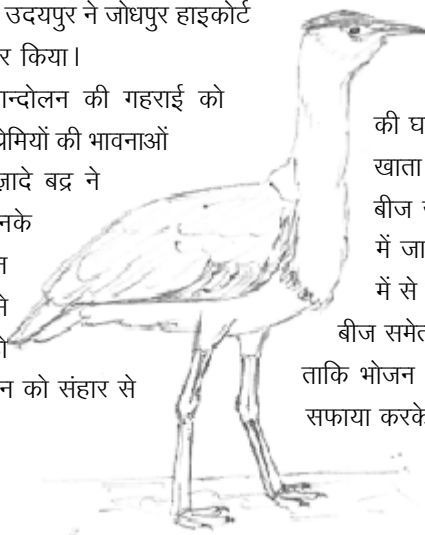 उदयपुर ने जोधपुर हाइकोर्ट
र किया।
ान्दोलन की गहराई को
प्रेमियों की भावनाओं
ज़ादे बद्र ने
नके
न को संहार से
की घ
खाता
बीज
में जा
में से
बीज समेत
ताकि भोजन
सफाया करके